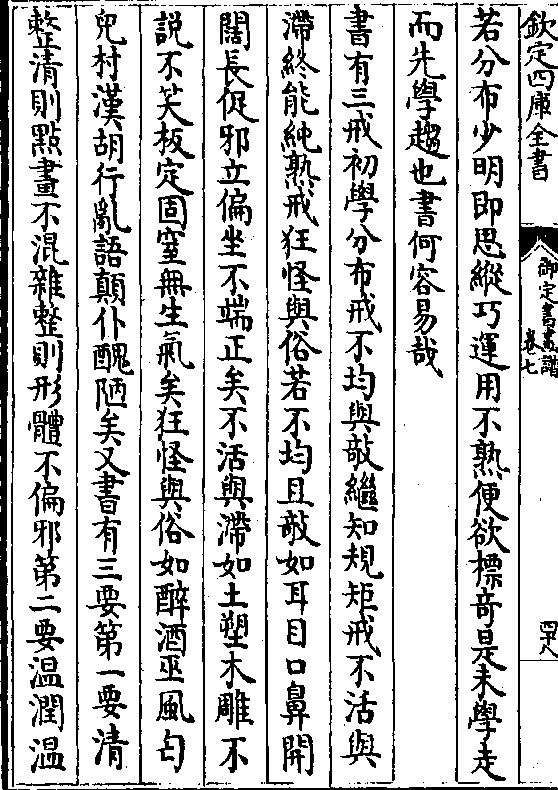 欽定四庫全書
御定書畫譜
卷七
四十八
若分布少明即思縱巧運用不熟便欲標奇是未學走
而先學趨也書何容易哉
書有三戒初學分布戒不均與欹繼知規矩戒不活與
滯終能純熟戒狂怪與俗若不均且欹如耳目口鼻開
闊長促邪立偏坐不端正矣不活與滯如土塑木雕不
說不笑板定固窒無生氣矣狂怪與俗如醉酒巫風丐
兒村漢胡行亂語顛仆醜陋矣又書有三要第一要清
整清則點畫不混雜整則形體不偏邪第二要温潤温